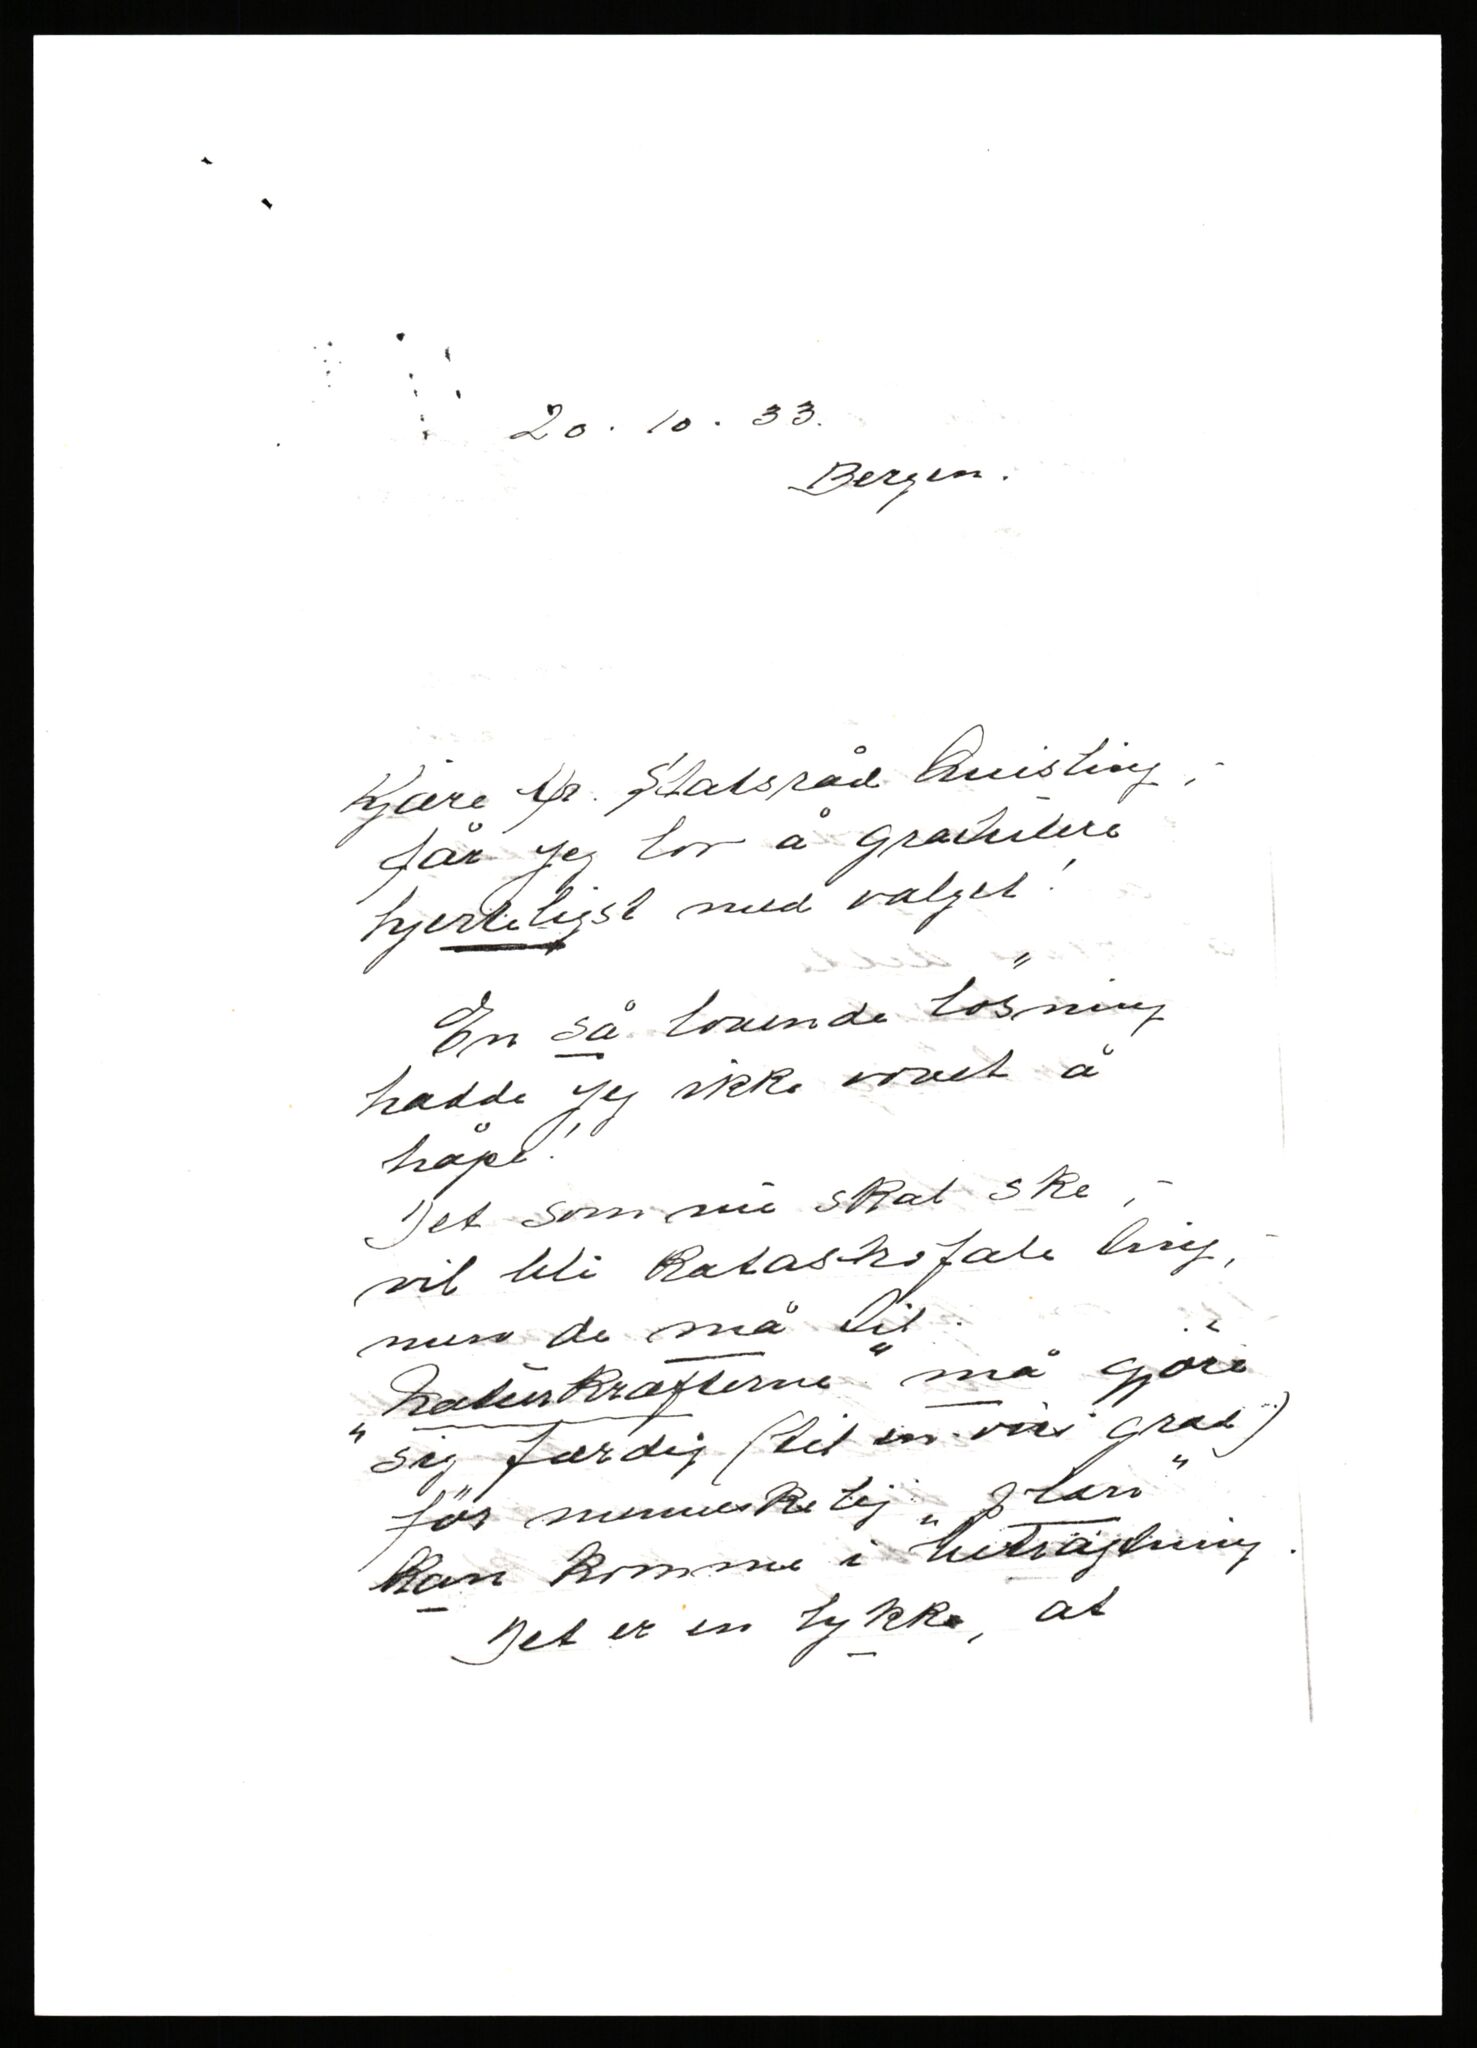 20. 10. 33.
Bergen.
Kjære Hr. Statsråd Quisling,-
får jeg lov å gratulere
hjerteligst med valget!
En så lovende løsning
hadde jeg ikke vovet å
håpe!
Det som nu skal ske,-
vil bli katastrofale ting,-
men de må til.
"Naturkræfterne" må gjöre
sig færdig (til en viss grad)
för menneskelig "plan"
kan komme i betragtning.
Det er en lykke, at